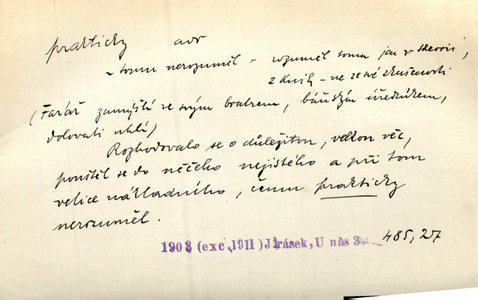 prakticky adv
– tomu nerozuměl – rozuměl tomu jen v theorii,
z knih – ne ze své zkušenosti
(Farář zamýšlí se svým bratrem, báňským úředníkem,
dolovati uhlí)
Rozhodovalo se o důležitou, velkou věc,
pouštěl se do něčeho nejistého a při tom
velice nákladného, čemu prakticky
nerozuměl.
1903 (exc. 1911) Jirásek, U nás 3 485,27